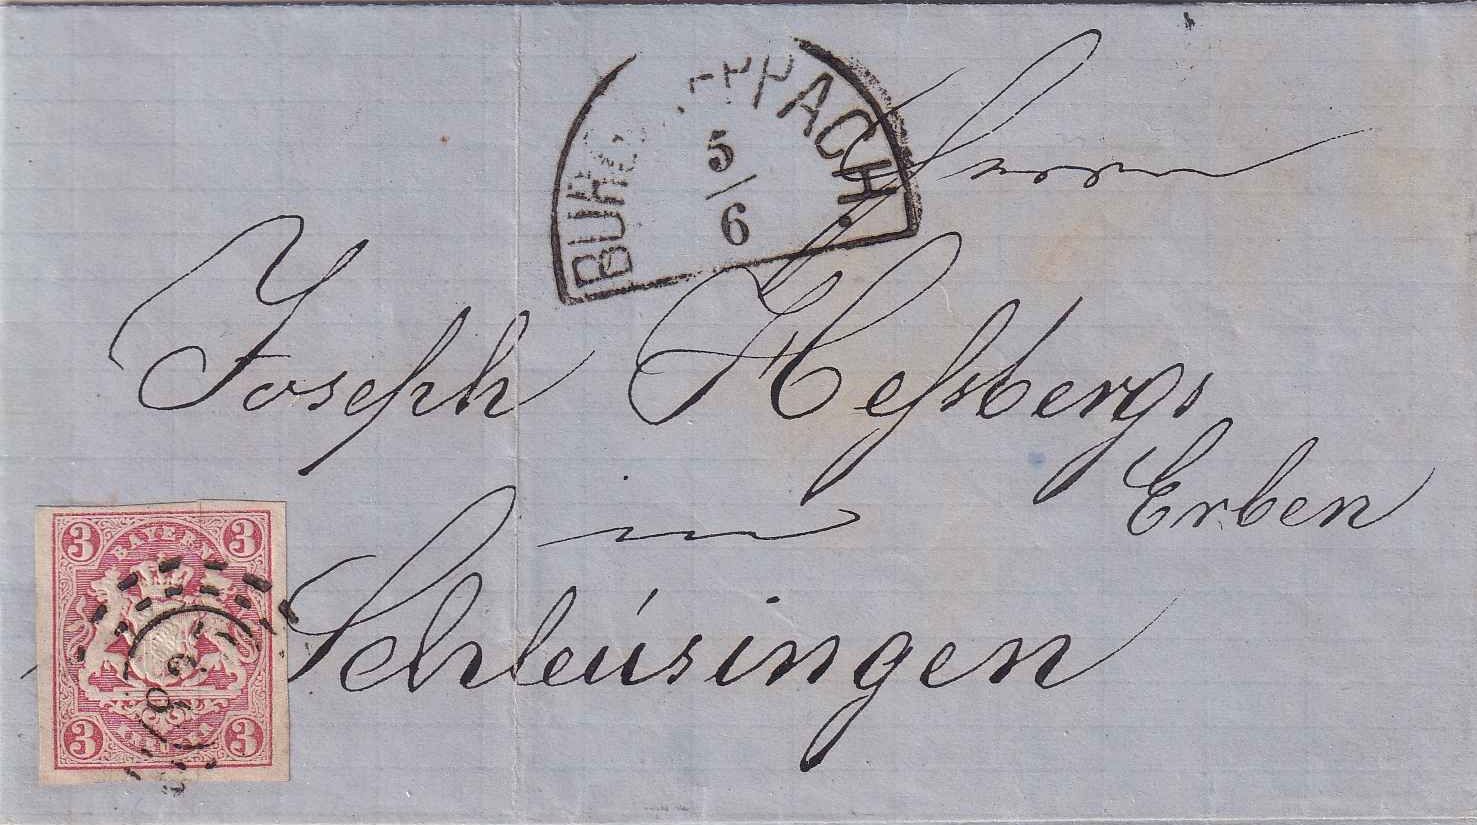 BURGPREPPACH.
5/6
Herrn
Joseph Heſsbergs
Erben
in
Schleúsingen
3 BAYERN 3
3 3